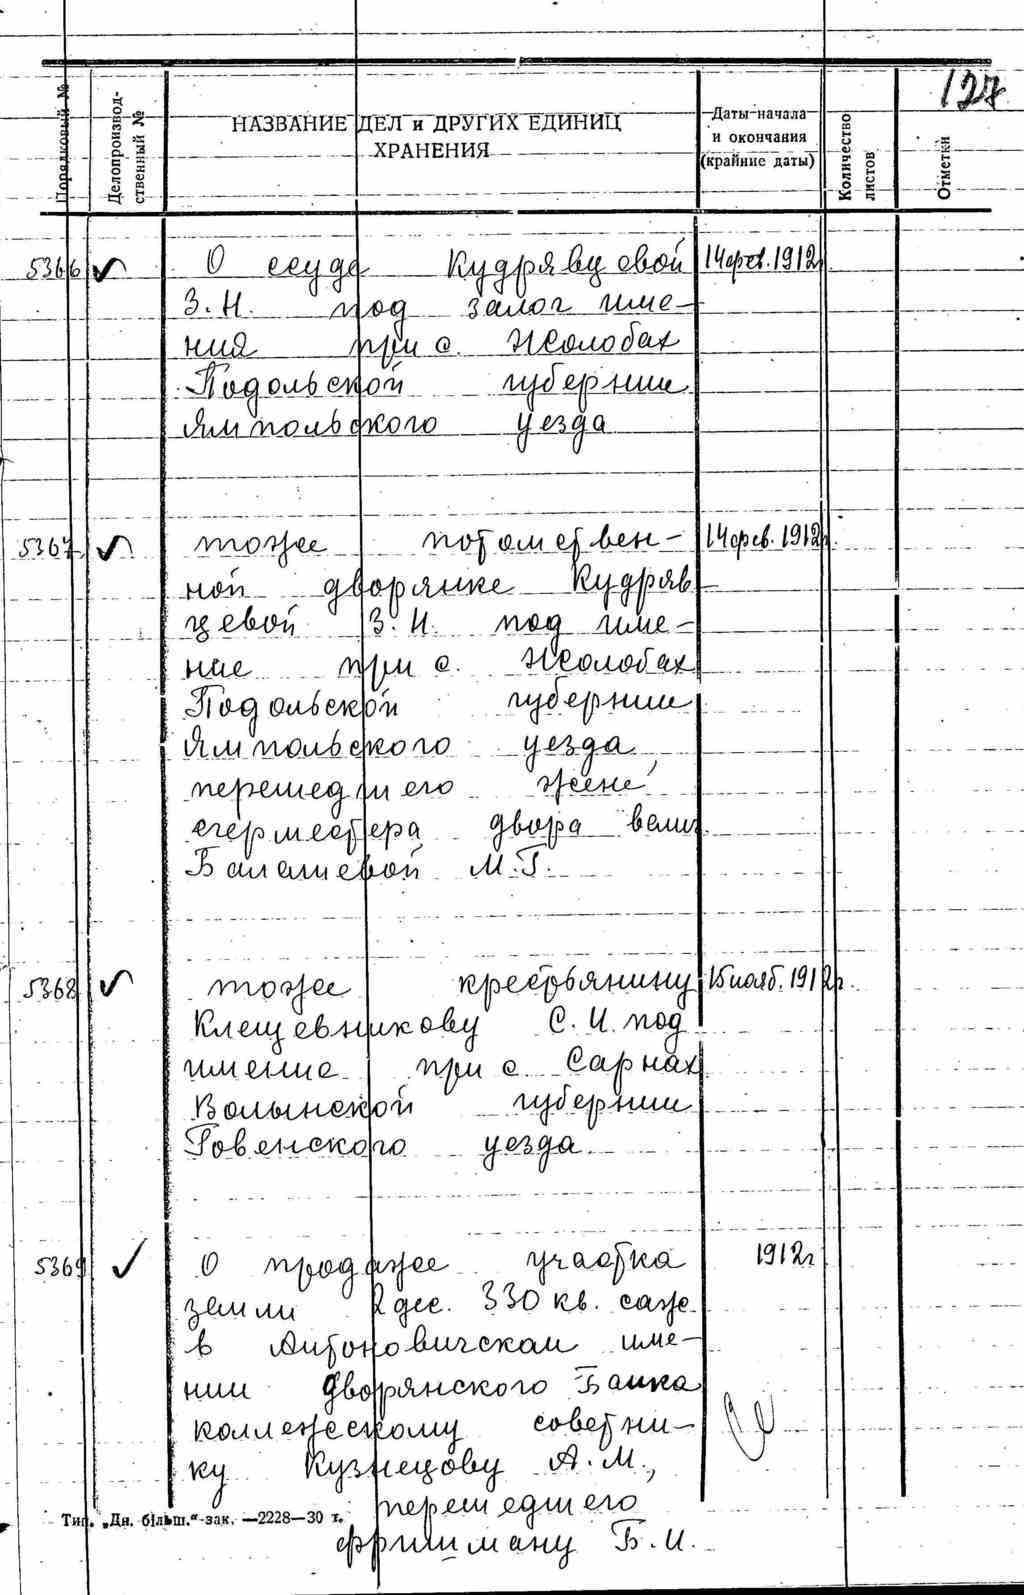 127
Порядковый №
Делопроизвод-
ственный №
НАЗВАНИЕ ДЕЛ и ДРУГИХ ЕДИНИЦ
ХРАНЕНИЯ
Даты начала
и окончания
(крайние даты)
Количество
листов
Отметки
5366 О ссуде Кудрявцевой 14 фев. 1912
З.Н. под залог име-
ния при с. Жолобах
Подольской губернии
Ямпольского уезда
5367 тоже потомствен- 14 фев. 1912г.
ной дворянке Кудряв
цевой З.Н. под име-
ние при с. Жолобах
Подольской губернии
Ямпольского уезда
перешедшего жене
егермейстера двора велич
Балашевой М.Г.
5368 тоже крестьянину 15 нояб. 1912г.
Клещевникову С.И. под
имение при с. Сарнах
Волынской губернии
Ровенского уезда.
5369 О продаже участка 1912г
земли 2 дес. 330 кв. саж.
в Антоновичском име-
нии Дворянского Банка
коллежскому советни-
ку Кузнецову А.М.,
перешедшего
Фришману Б.И.
Тип. „Дн. більш."-зак. —2228—30 т.